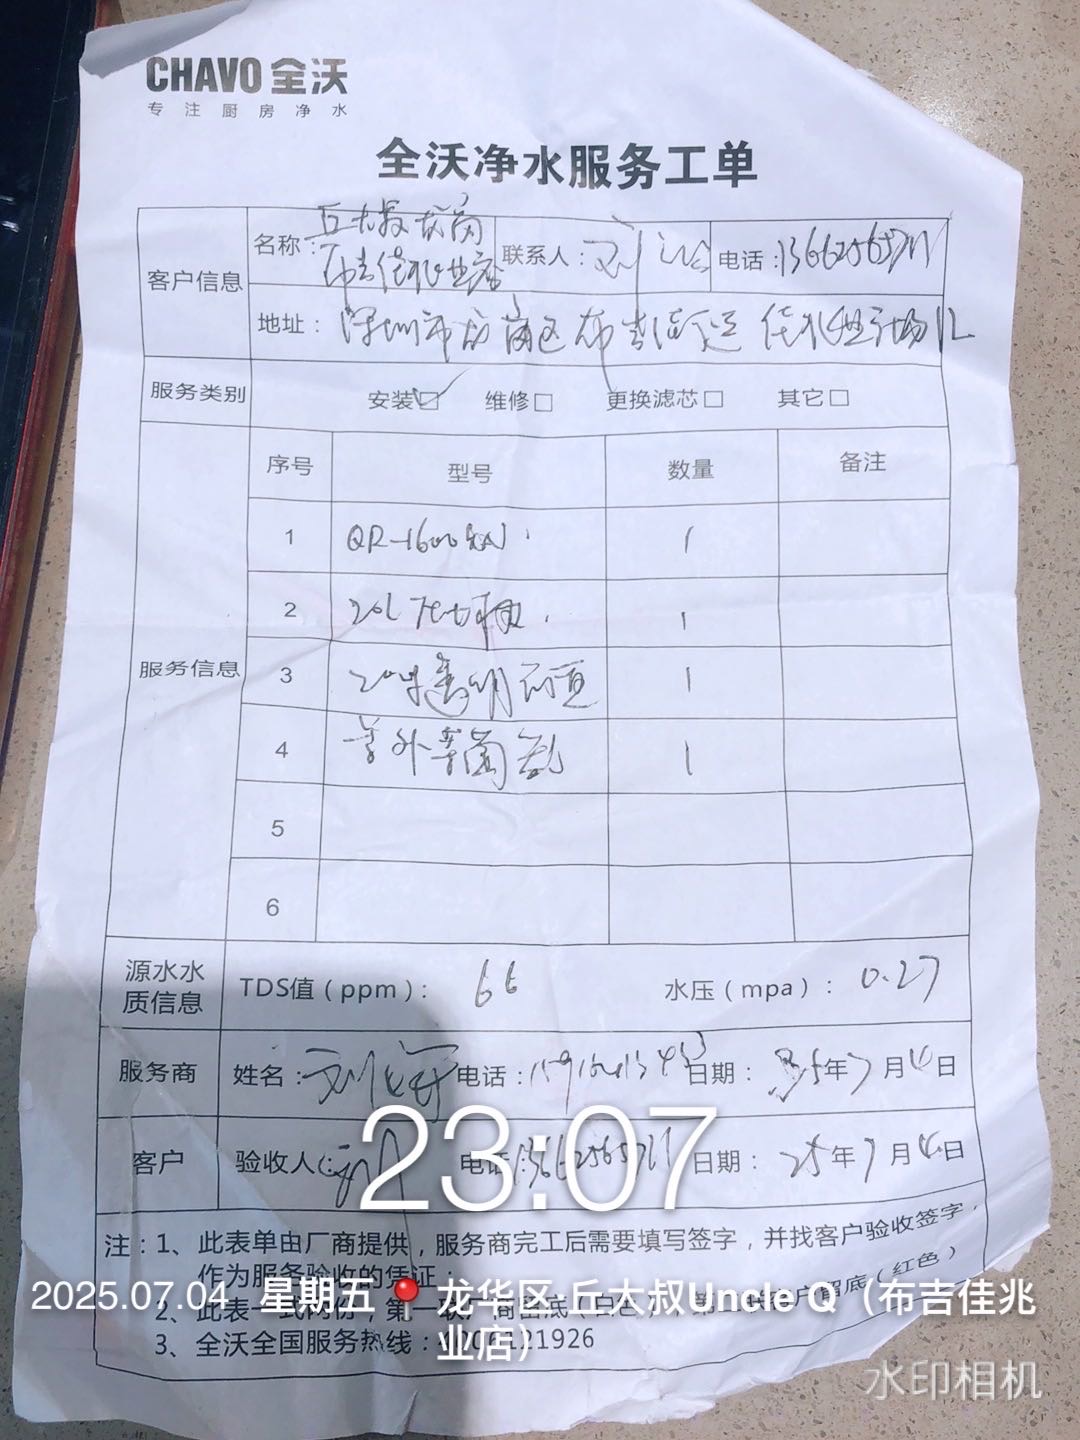 CHAVO 全沃
专注厨房净水
全沃净水服务工单
客户信息
名称：丘大叔龙岗
布吉佳兆业店
联系人：刘
电话：13662565711
地址：深圳市龙岗区布吉街道佳兆业广场
服务类别
安装 维修 更换滤芯 其它
服务信息
序号 型号 数量 备注
1 QR-1600 1
2 20L 1
3 1
4 紫外杀菌 1
5
6
源水水
质信息
TDS值（ppm）： 66 水压（mpa）： 0.27
服务商 姓名：刘 电话： 日期： 25年7月4日
客户 验收人： 电话：13662565711 日期： 25年7月4日
注：1、此表单由厂商提供，服务商完工后需要填写签字，并找客户验收签字，
作为服务验收的凭证；
2、此表一式两份，第一 留底（红色）
3、全沃全国服务热线： 121926
23:07
2025.07.04 星期五 龙华区·丘大叔Uncle Q（布吉佳兆
业店）
水印相机